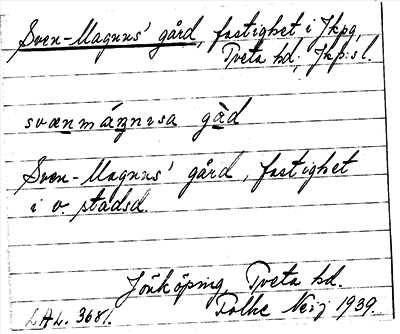 Sven-Magnus' gård, fastighet i Jkpg,
Tveta hd; Jkp:s l.
svænmáŋnısa gàd
Sven-Magnus' gård, fastighet
i v. stadsd.
Jönköping, Tveta hd.
LAL. 3681. Folke Neij 1939.